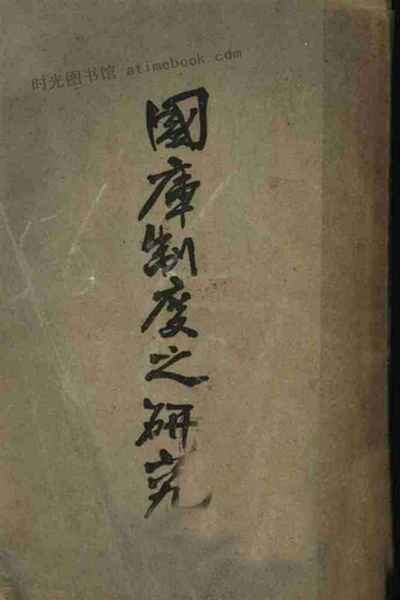 时光图书馆 atimebook.com
國庫制度之研究